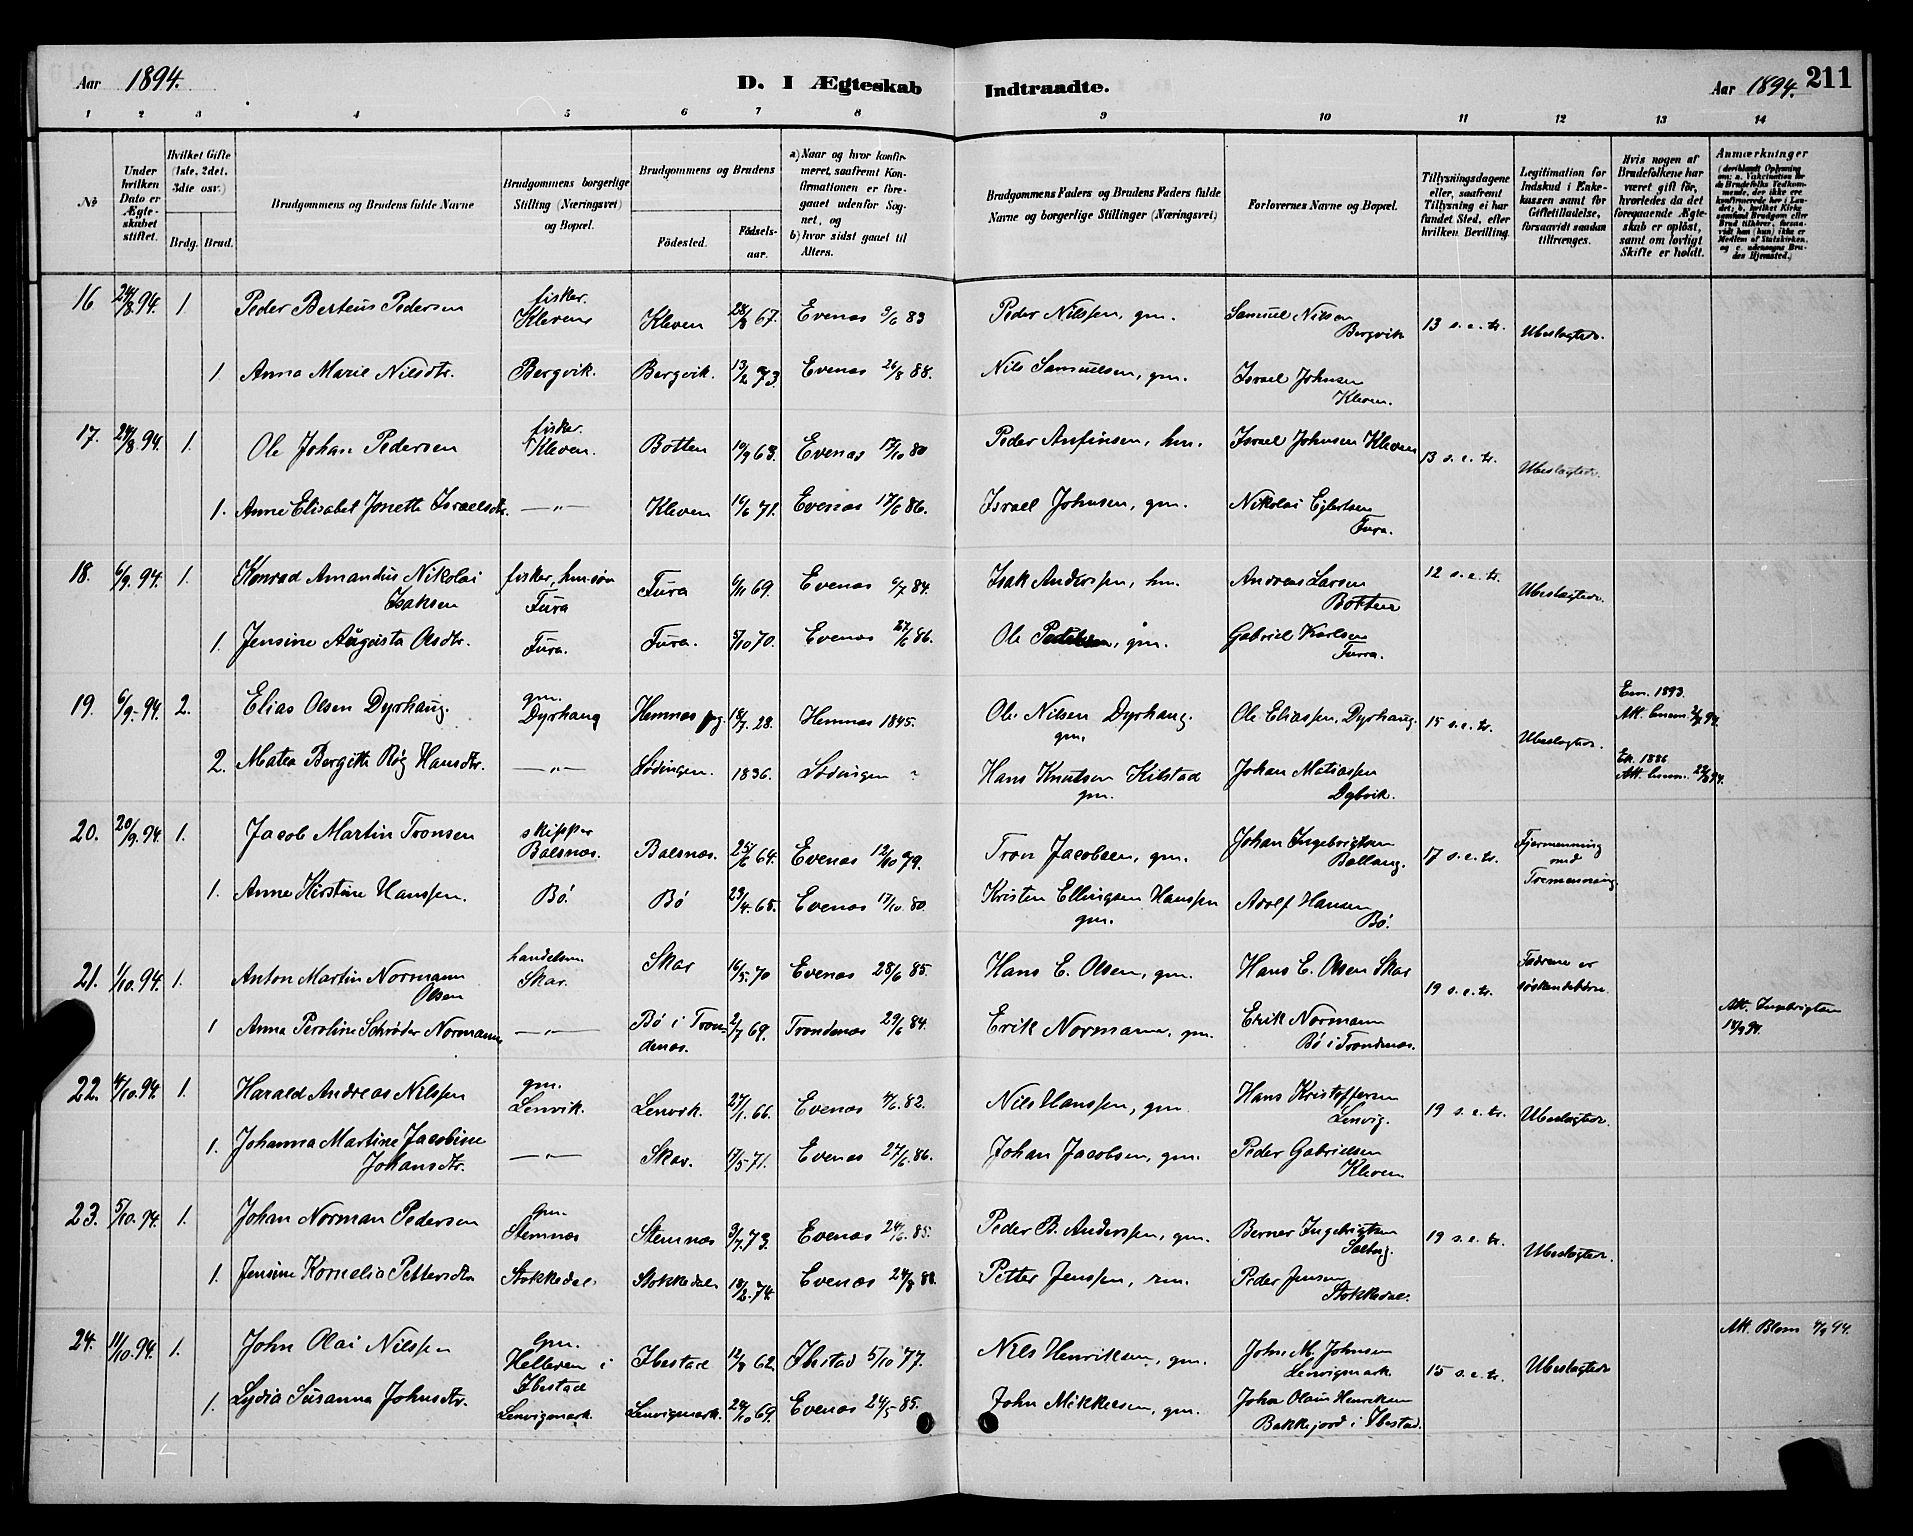 Aar 1894. D. I Ægteskab Indtraadte. Aar 1894. 211
1 2 3 4 5 6 7 8 9 10 11 12 13 14
No
Under hvilken Dato er Ægteskabet stiftet.
Hvilket Gifte (1ste, 2det, 3die osv.)
Brdg. Brud.
Brudgommens og Brudens fulde Navne
Brudgommens borgerlige Stilling (Næringsvei) og Bopæl.
Brudgommens og Brudens
Fødested. Fødselsaar.
a) Naar og hvor konfirmeret, saafremt Konfirmationen er foregaaet udenfor Sognet, og
b) hvor sidst gaaet til Alters.
Brudgommens Faders og Brudens Faders fulde Navne og borgerlige Stillinger (Næringsvei)
Forlovernes Navne og Bopæl.
Tillysningsdagene eller, saafremt Tillysning ei har fundet Sted, efter hvilken Bevilling.
Legitimation for Indskud i Enkekassen samt for Giftetilladelse, forsaavidt saadan tiltrænges.
Hvis nogen af Brudefolkene har været gift før, hvorledes da det foregaaende Ægteskab er opløst, samt om lovligt Skifte er holdt.
Anmærkninger
16 24/8.94. 1 Peder Berteus Pedersen fisker. Kleven Kleven 28/8 67. Evenæs 3/6 83 Peder Nilssen, gm. Samuel Nilsen Bergvik 13 s.e.tr. Ubeslægtede.
1. Anna Marie Nilsdtr. Bergvik. Bergvik. 13/2 73. Evenæs 26/8 88. Nils Samuelsen, gm. Israel Johnsen Kleven.
17. 24/8.94. 1. Ole Johan Pedersen fisker. Kleven. Botten 10/9 63. Evenæs 17/10 80 Peder Anfinsen, hm. Israel Johnsen Kleven 13 s.e.tr. Ubeslægtede.
1. Anne Elisabet Jonette Israelsdtr. —"— Kleven 16/6 71. Evenæs 17/6 86. Israel Johnsen, gm. Nikolai Eilertsen Fura.
18. 6/9.94. 1. Konrad Amandus Nikolai Isaksen fisker, hm.søn Fura Fura 6/11 69. Evenæs 6/7 84. Isak Anderssen, hm. Andreas Larsen Botten 12 s.e.tr. Ubeslægtede.
1. Jensine Augusta Olsdtr. Fura. Fura. 5/10 70. Evenæs 27/6 86. Ole Pedersen, gm. Gabriel Karlsen Furra.
19. 6/9.94. 2. Elias Olsen Dyrhaug. gm. Dyrhaug Hemnæs pg. 18/7.28. Hemnæs 1845. Ole Nilsen Dyrhaug. gm. Ole Eliassen, Dyrhaug 15 s.e.tr. Ubeslægtede. Em. 1893.
2. Matea Bergitte Røg Hansdtr. —"— Lødingen. 1836. Lødingen " Hans Knutsen Kilstad gm. Johan Matiassen Dybvik. Ek. 1886
20. 20/9.94. 1. Jacob Martin Tronsen skipper Balsnæs. Balsnæs. 25/6 64. Evenæs 12/10 79. Tron Jacobsen, gm. Johan Ingebrigtsen Ballang. 17 s.e.tr. Fjermenning med Tremenning
1. Anne Kirstine Hanssen. Bø. Bø 23/4. 65. Evenæs 17/10.80. Kristen Ellingsen Hanssen gm. Adolf Hansen Bø.
21. 1/10.94. 1. Anton Martin Normann Olsen handelsm. Skar. Skar 16/5.70 Evenæs 28/6 85. Hans E. Olsen, gm. Hans E. Olsen Skar 19 s.e.tr. Fædrene er søskendebørn.
1 Anna Peroline Schrøder Normann —"— Bø i Trondenæs. 2/7 69. Trondenæs 29/6 84. Erik Normann, gm. Erik Normann Bø i Trondenæs. Att. Ingebrigtsen 14/9 94.
22. 4/10.94. 1. Harald Andreas Nilssen gm. Lenvik. Lenvik. 27/1. 66. Evenæs 4/6.82. Nils Hanssen, gm. Hans Kristoffersen Lenvig. 19 s.e.tr. Ubeslægtede.
1. Johanna Martine Jacobine Johansdtr. —"— Skar. 17/5 71. Evenæs 27/6.86. Johan Jacobsen, gm. Peder Gabrielsen Kleven
23. 5/10.94. 1. Johan Norman Pedersen gm. Stemnæs Stemnæs 3/7.73. Evenæs 24/6.85. Peder B. Anderssen, gm. Berner Ingebrigtsen Salberg. 19 s.e.tr. Ubeslægtede.
1. Jensine Kornelia Pettersdtr Stokkedal. Stokkedalen 18/2.74. Evenæs 24/8 88. Petter Jenssen, rm. Peder Jensen Stokkedal.
24. 11/10.94. 1. John Olai Nilssen gm. Helleren i Ibestad Ibestad 12/8 62. Ibestad 5/10 77. Nils Henriksen, gm. John M. Johnsen Lenvigmark. 15 s.e.tr. Ubeslægtede Att. Blom 4/9 94.
1. Lydia Susanna Johnsdtr. Lenvigmark. Lenvigmark. 24/10 69. Evenæs 24/5 85. John Mikkelsen, gm. Johan Olaus Henriksen Bakkejord i Ibestad.